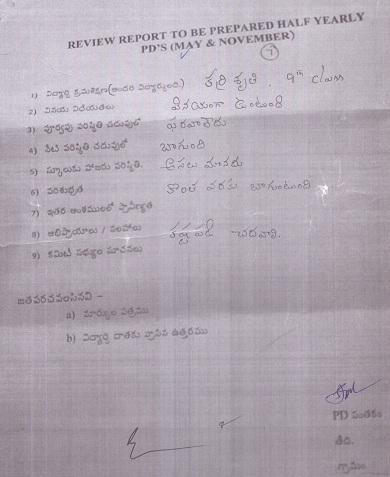 REVIEW REPORT TO BE PREPARED HALF YEARLY
PD'S (MAY & NOVEMBER)
7
1) విద్యార్థి క్రమశిక్షణ(అందరి విద్యార్థులది) 9th class
2) వినయ విధేయతలు వినయంగా ఉంటుంది
3) పూర్వపు పరిస్థితి చదువులో ఫరవాలేదు
4) నేటి పరిస్థితి చదువులో బాగుంది
5) స్కూలుకు హాజరు పరిస్థితి. అసలు మానదు
6) పరిశుభ్రత కొంత వరకు బాగుంటుంది
7) ఇతర అంశములలో ప్రావీణ్యత
8) అభిప్రాయాలు / సలహాలు కష్టపడి చదవాలి.
9) కమిటీ సభ్యుల సూచనలు
జతపరచవలసినవి –
a) మార్కుల పత్రము
b) విద్యార్థి దాతకు వ్రాసిన ఉత్తరము
PD సంతకం
తేది.
గ్రామం